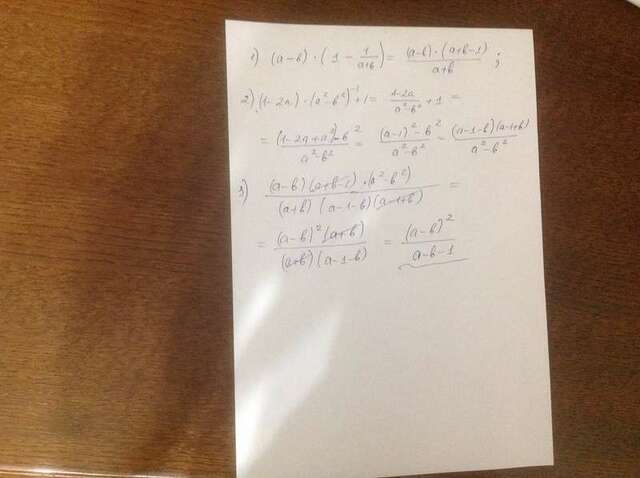 1) (a-b)·(1 - 1/(a+b)) = (a-b)·(a+b-1)/(a+b) ;
2) (1-2a)·(a²-b²)⁻¹+1 = (1-2a)/(a²-b²) + 1 =
= (1-2a+a²)-b²/(a²-b²) = ((a-1)²-b²)/(a²-b²) = (a-1-b)(a-1+b)/(a²-b²)
3) (a-b)(a+b-1)·(a²-b²)/((a+b)(a-1-b)(a-1+b)) =
= (a-b)²(a+b)/((a+b)(a-1-b)) = (a-b)²/(a-b-1)